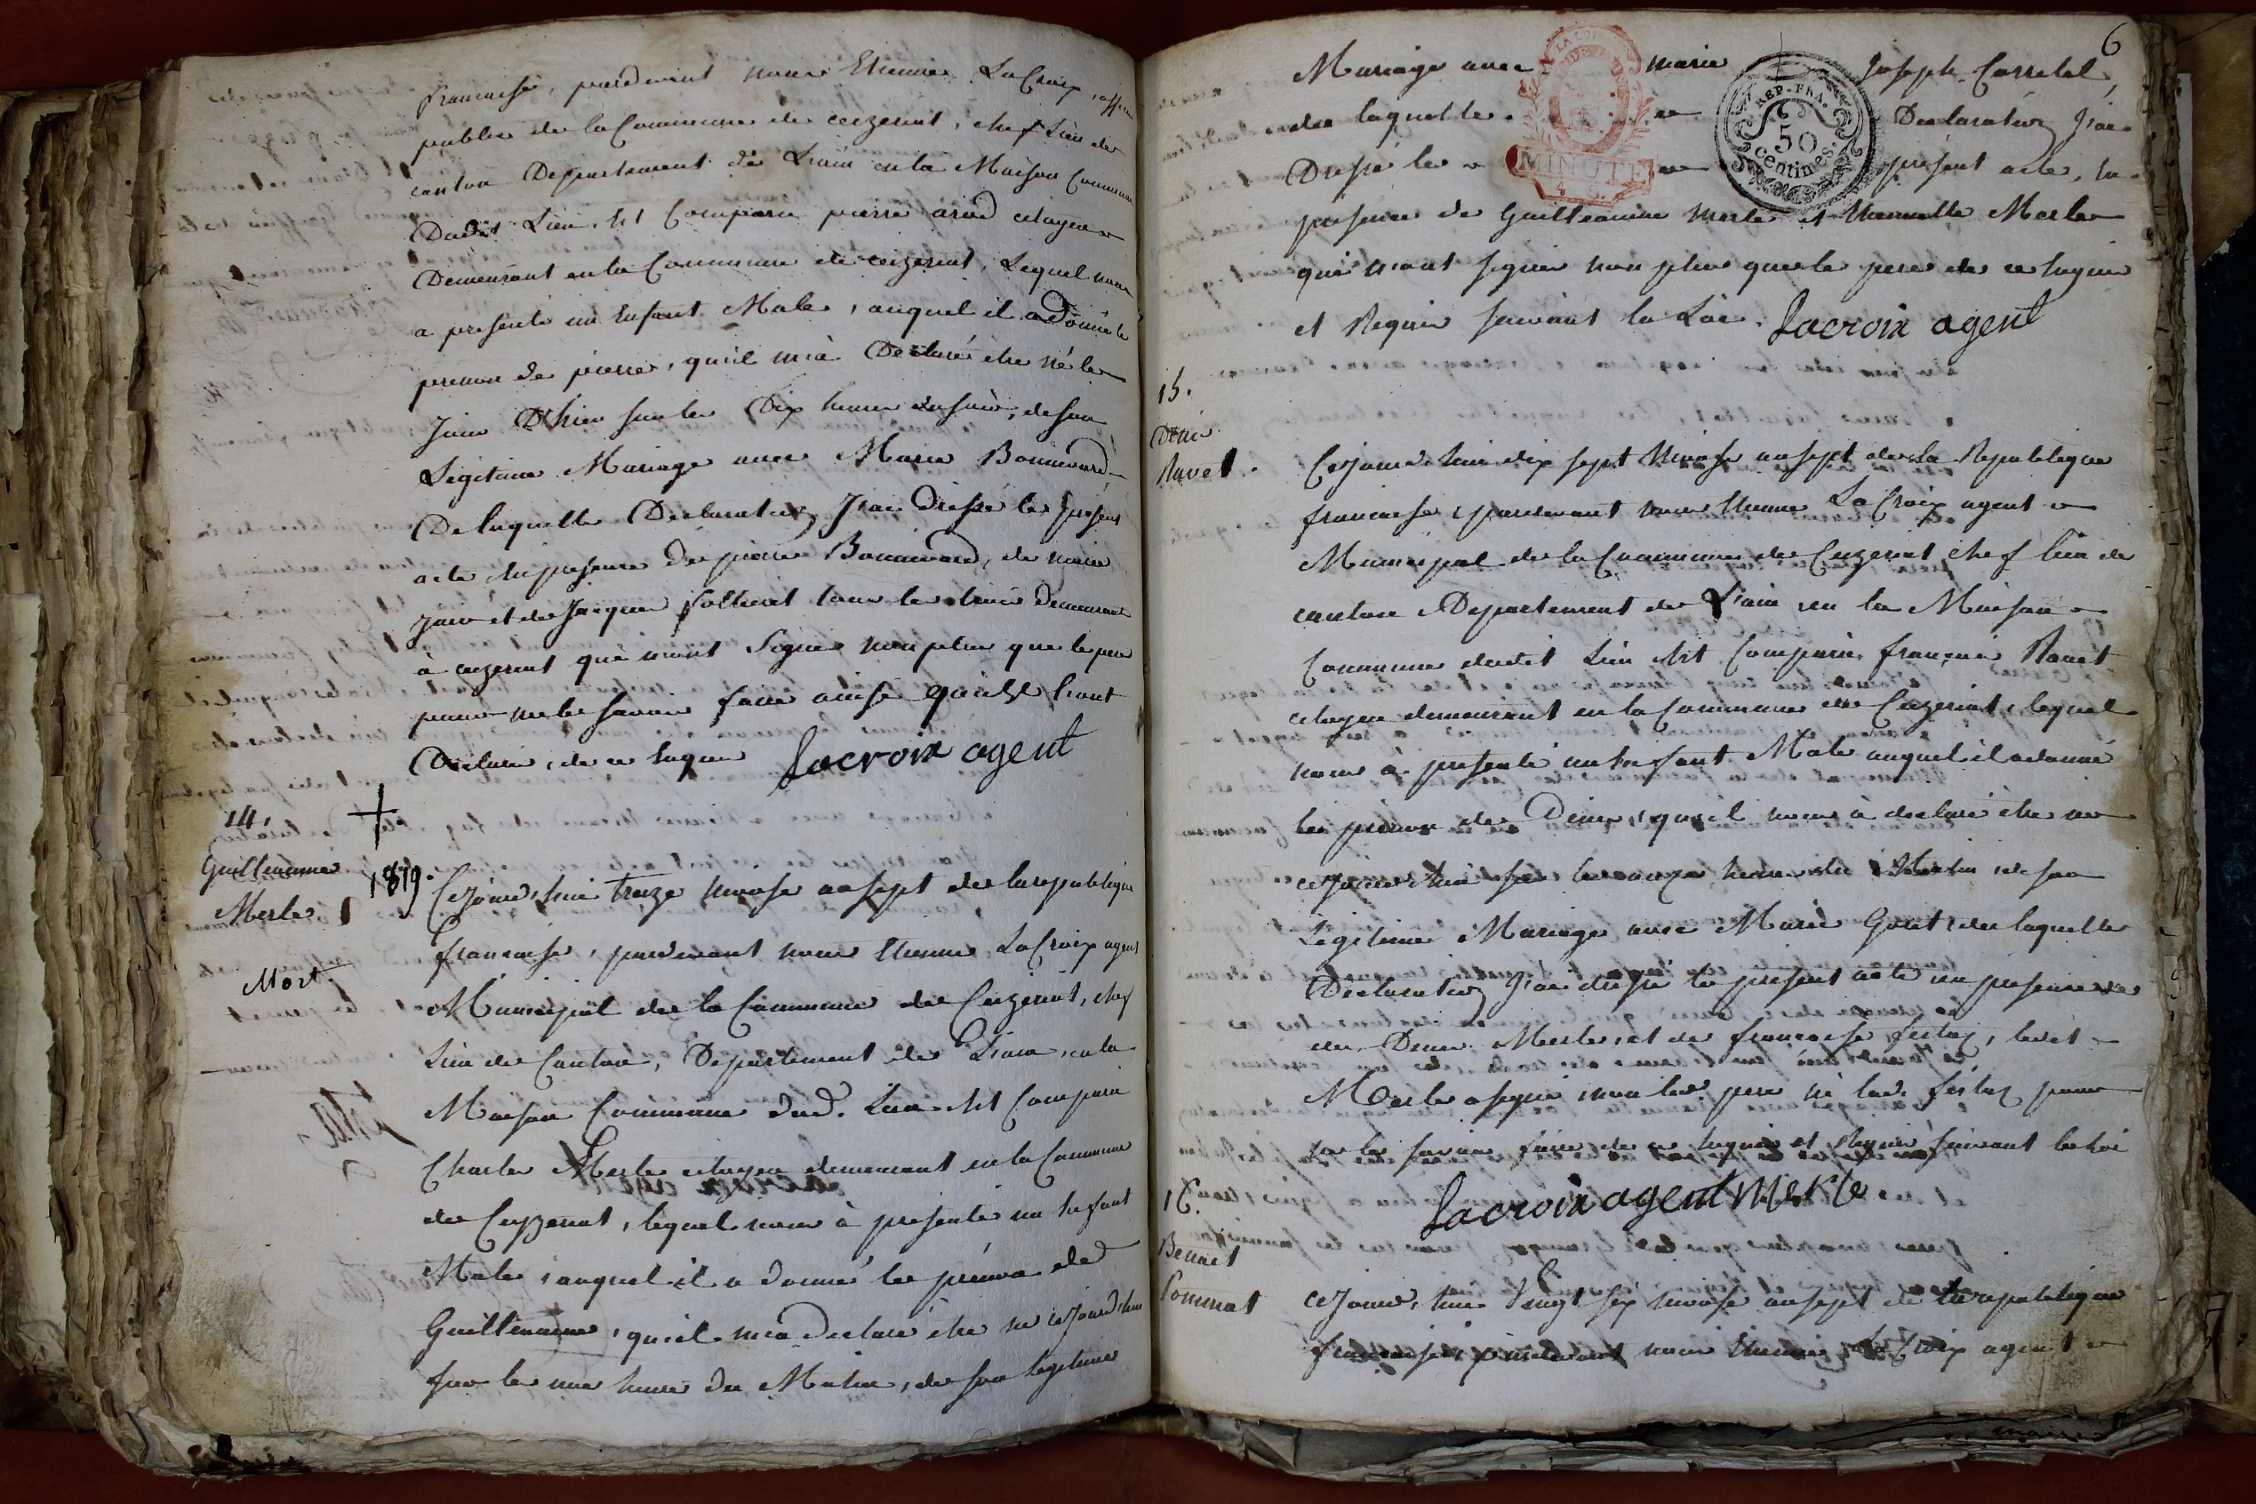 francaise, pardevant nous Etienne LaCroix, officier
public de la Commune de ceizeriat, chef Lieu de
canton Departement de Lain en la Maison Commune
Dudit Lieu, Est Comparu pierre citoyen
Demeurant en la Commune de ceizeriat, Lequel nous
a presenté un Enfant Male, auquel il a Donné le
prenom de pierre, qu'il m'a Déclaré être né le
Jour D'hier sur les Dix heures du soir, de son
Légitime Mariage avec Marie Bonnevard,
De laquelle Declaration J'ai Dressé le présent
acte En présence de pierre Bonnevard, de
et de Jacques tous les Demeurant
à ceizeriat qui n'ont Signé non plus que le pere
pour ne le savoir faire ainsi qu'ils l'ont
Déclaré, de ce Enquis Lacroix agent
14.
Guillaume
Merle
1819.
Mort.
Cejourd'hui Treize Nivose an sept de la republique
francaise, pardevant nous Etienne LaCroix agent
Municipal de la Commune de Ceizeriat, chef
Lieu de Canton, Departement de Lain, en la
Maison Commune dud. Lieu Est Comparu
Charle Merle citoyen demeurant en la Commune
de Ceyzeriat, lequel nous à presenté un Enfant
Male, auquel il a donné le prénom de
Guillaume, qu'il m'a declaré être né cejourd'hui
sur les une heure du Matin, de son légitime
6
Mariage avec Marie Joseph
de laquelle Declaration J'ai
Dressé le présent acte, en
présence de Guillaume Merle et Merle
qui n'ont signé non plus que le pere de ce Enquis
et Requis suivant la Loi. Lacroix agent
MINUTE
REP. FRA.
50
centimes.
15.
Denis
Ravet.
Cejourd'hui dix sept Nivose an sept de la Republique
francaise, pardevant nous Etienne LaCroix agent
Municipal de la Commune de Ceizeriat chef lieu de
canton Departement de Lain en la Maison
Commune dudit Lieu Est Comparu françois Ravet
citoyen demeurant en la Commune de Ceizeriat, lequel
nous à presenté un Enfant Male auquel il a donné
les prénom de Denis, qu'il nous à declaré être né
cejourd'hui sur les onze heures du Matin, de son
Légitime Mariage avec Marie de laquelle
Déclaration J'ai dressé le présent acte en présence
de Denis Merle, et de francoise ledit
Merle a signé, non led. pere ni lad. pour
ne le savoir faire de ce Enquis et Requis suivant la Loi
Lacroix agent Merle
16.
Benoit
Cejourd'hui Vingt six Nivose an sept de la republique
francaise, pardevant nous Etienne LaCroix agent